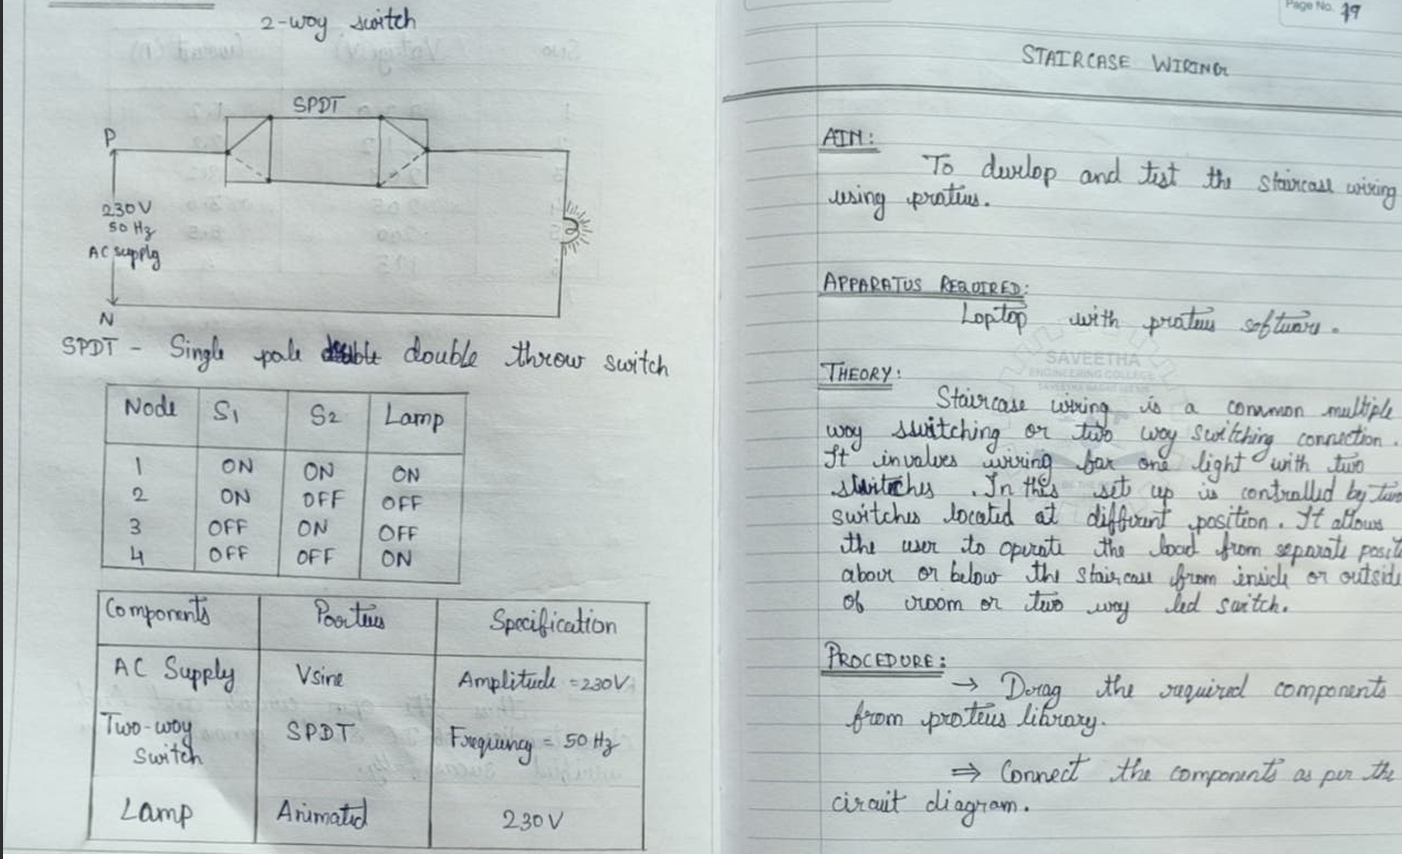 2-way switch
SPDT
P
230V
50 Hz
AC supply
N
SPDT - Single pole double throw switch
Node S1 S2 Lamp
1 ON ON ON
2 ON OFF OFF
3 OFF ON OFF
4 OFF OFF ON
Components Poorteus Specification
AC Supply Vsine Amplitude = 230V
Two-way SPDT Frequency = 50 Hz
Switch
Lamp Animated 230V
Page No. 79
STAIRCASE WIRING
AIM:
To develop and test the staircase wiring
using proteus.
APPARATUS REQUIRED:
Laptop with proteus software.
SAVEETHA
ENGINEERING COLLEGE
THEORY:
Staircase wiring is a common multiple
way switching or two way switching connection.
It involves wiring for one light with two
switches. In this set up is controlled by two
switches located at different position. It allows
the user to operate the load from separate posit
above or below the staircase from inside or outside
of room or two way led switch.
PROCEDURE:
→ Drag the required components
from proteus library.
⇒ Connect the components as per the
circuit diagram.